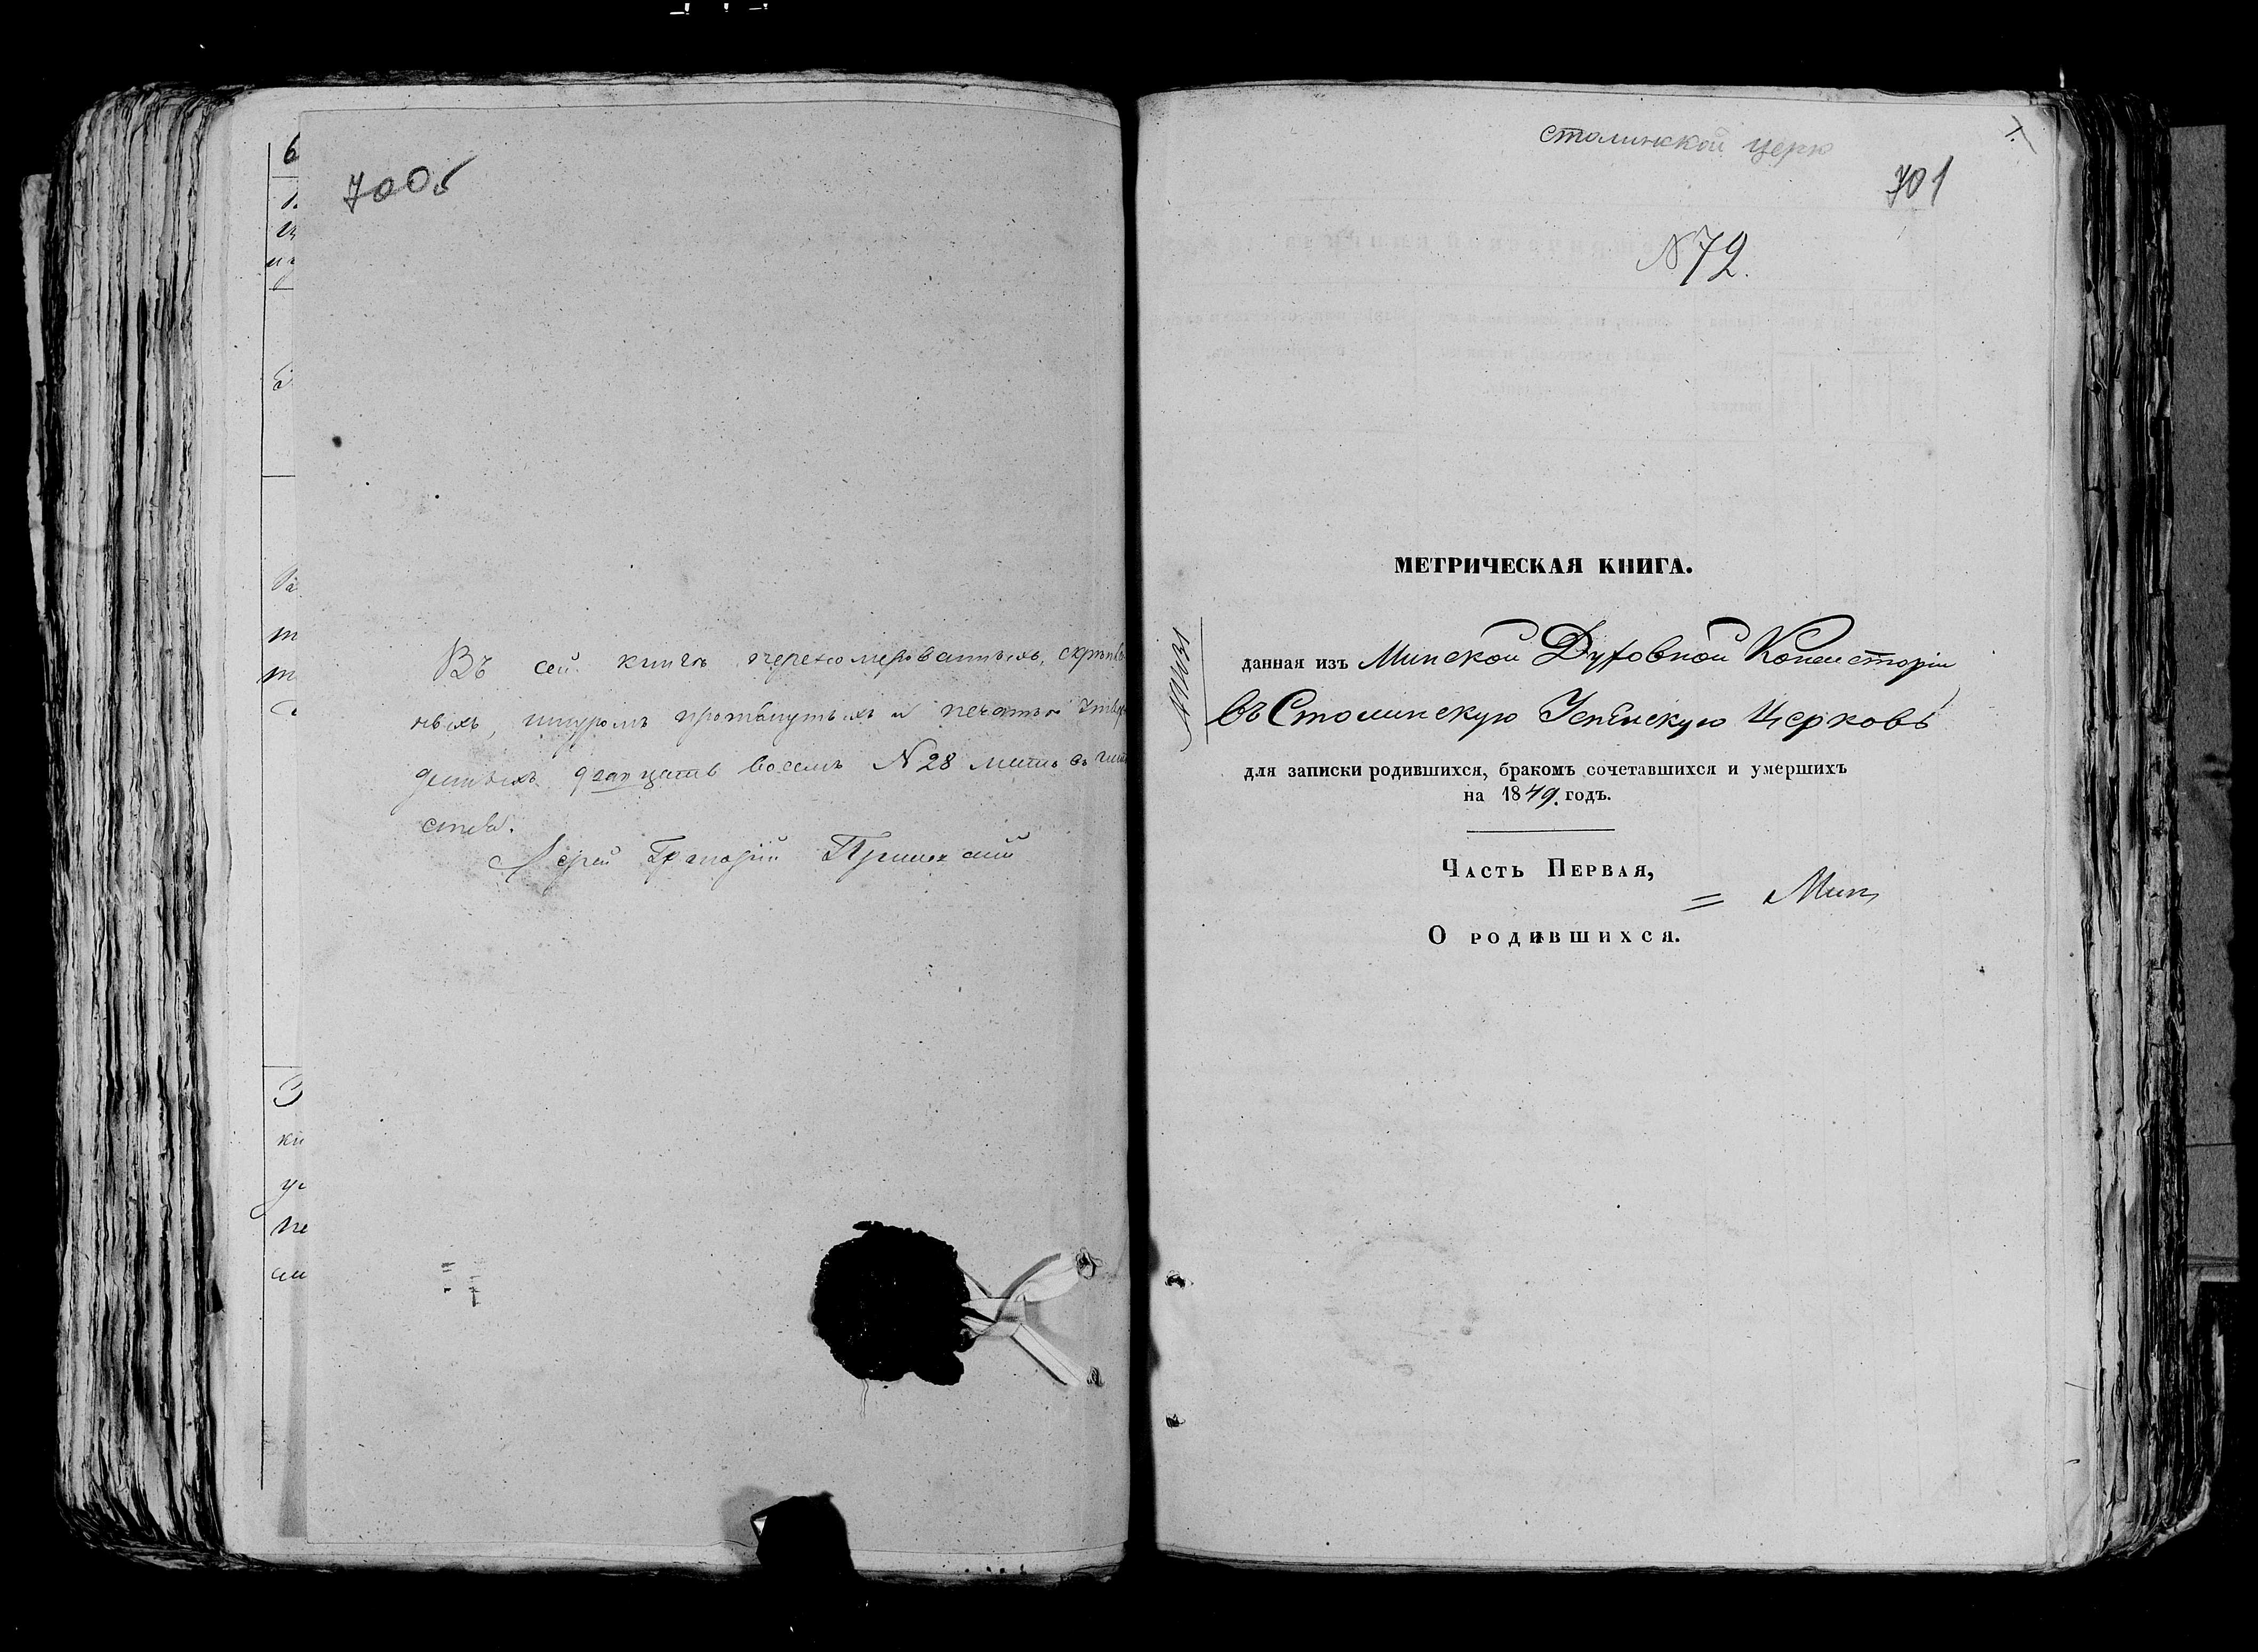 700б
Въ сей книгѣ переномерованныхъ, скрѣплен
ныхъ, шнуромъ протянутыхъ и печатью утверж
денныхъ двадцать восемь N 28 листовъ
Іерей Григорій
столинской церк
701
N 72.
МЕТРИЧЕСКАЯ КНИГА.
данная изъ Минской Духовной Консисторіи
въ Столинскую Успенскую Церковь
для записки родившихся, бракомъ сочетавшихся и умершихъ
на 1849. годъ.
Часть Первая,
Мин
О родившихся.